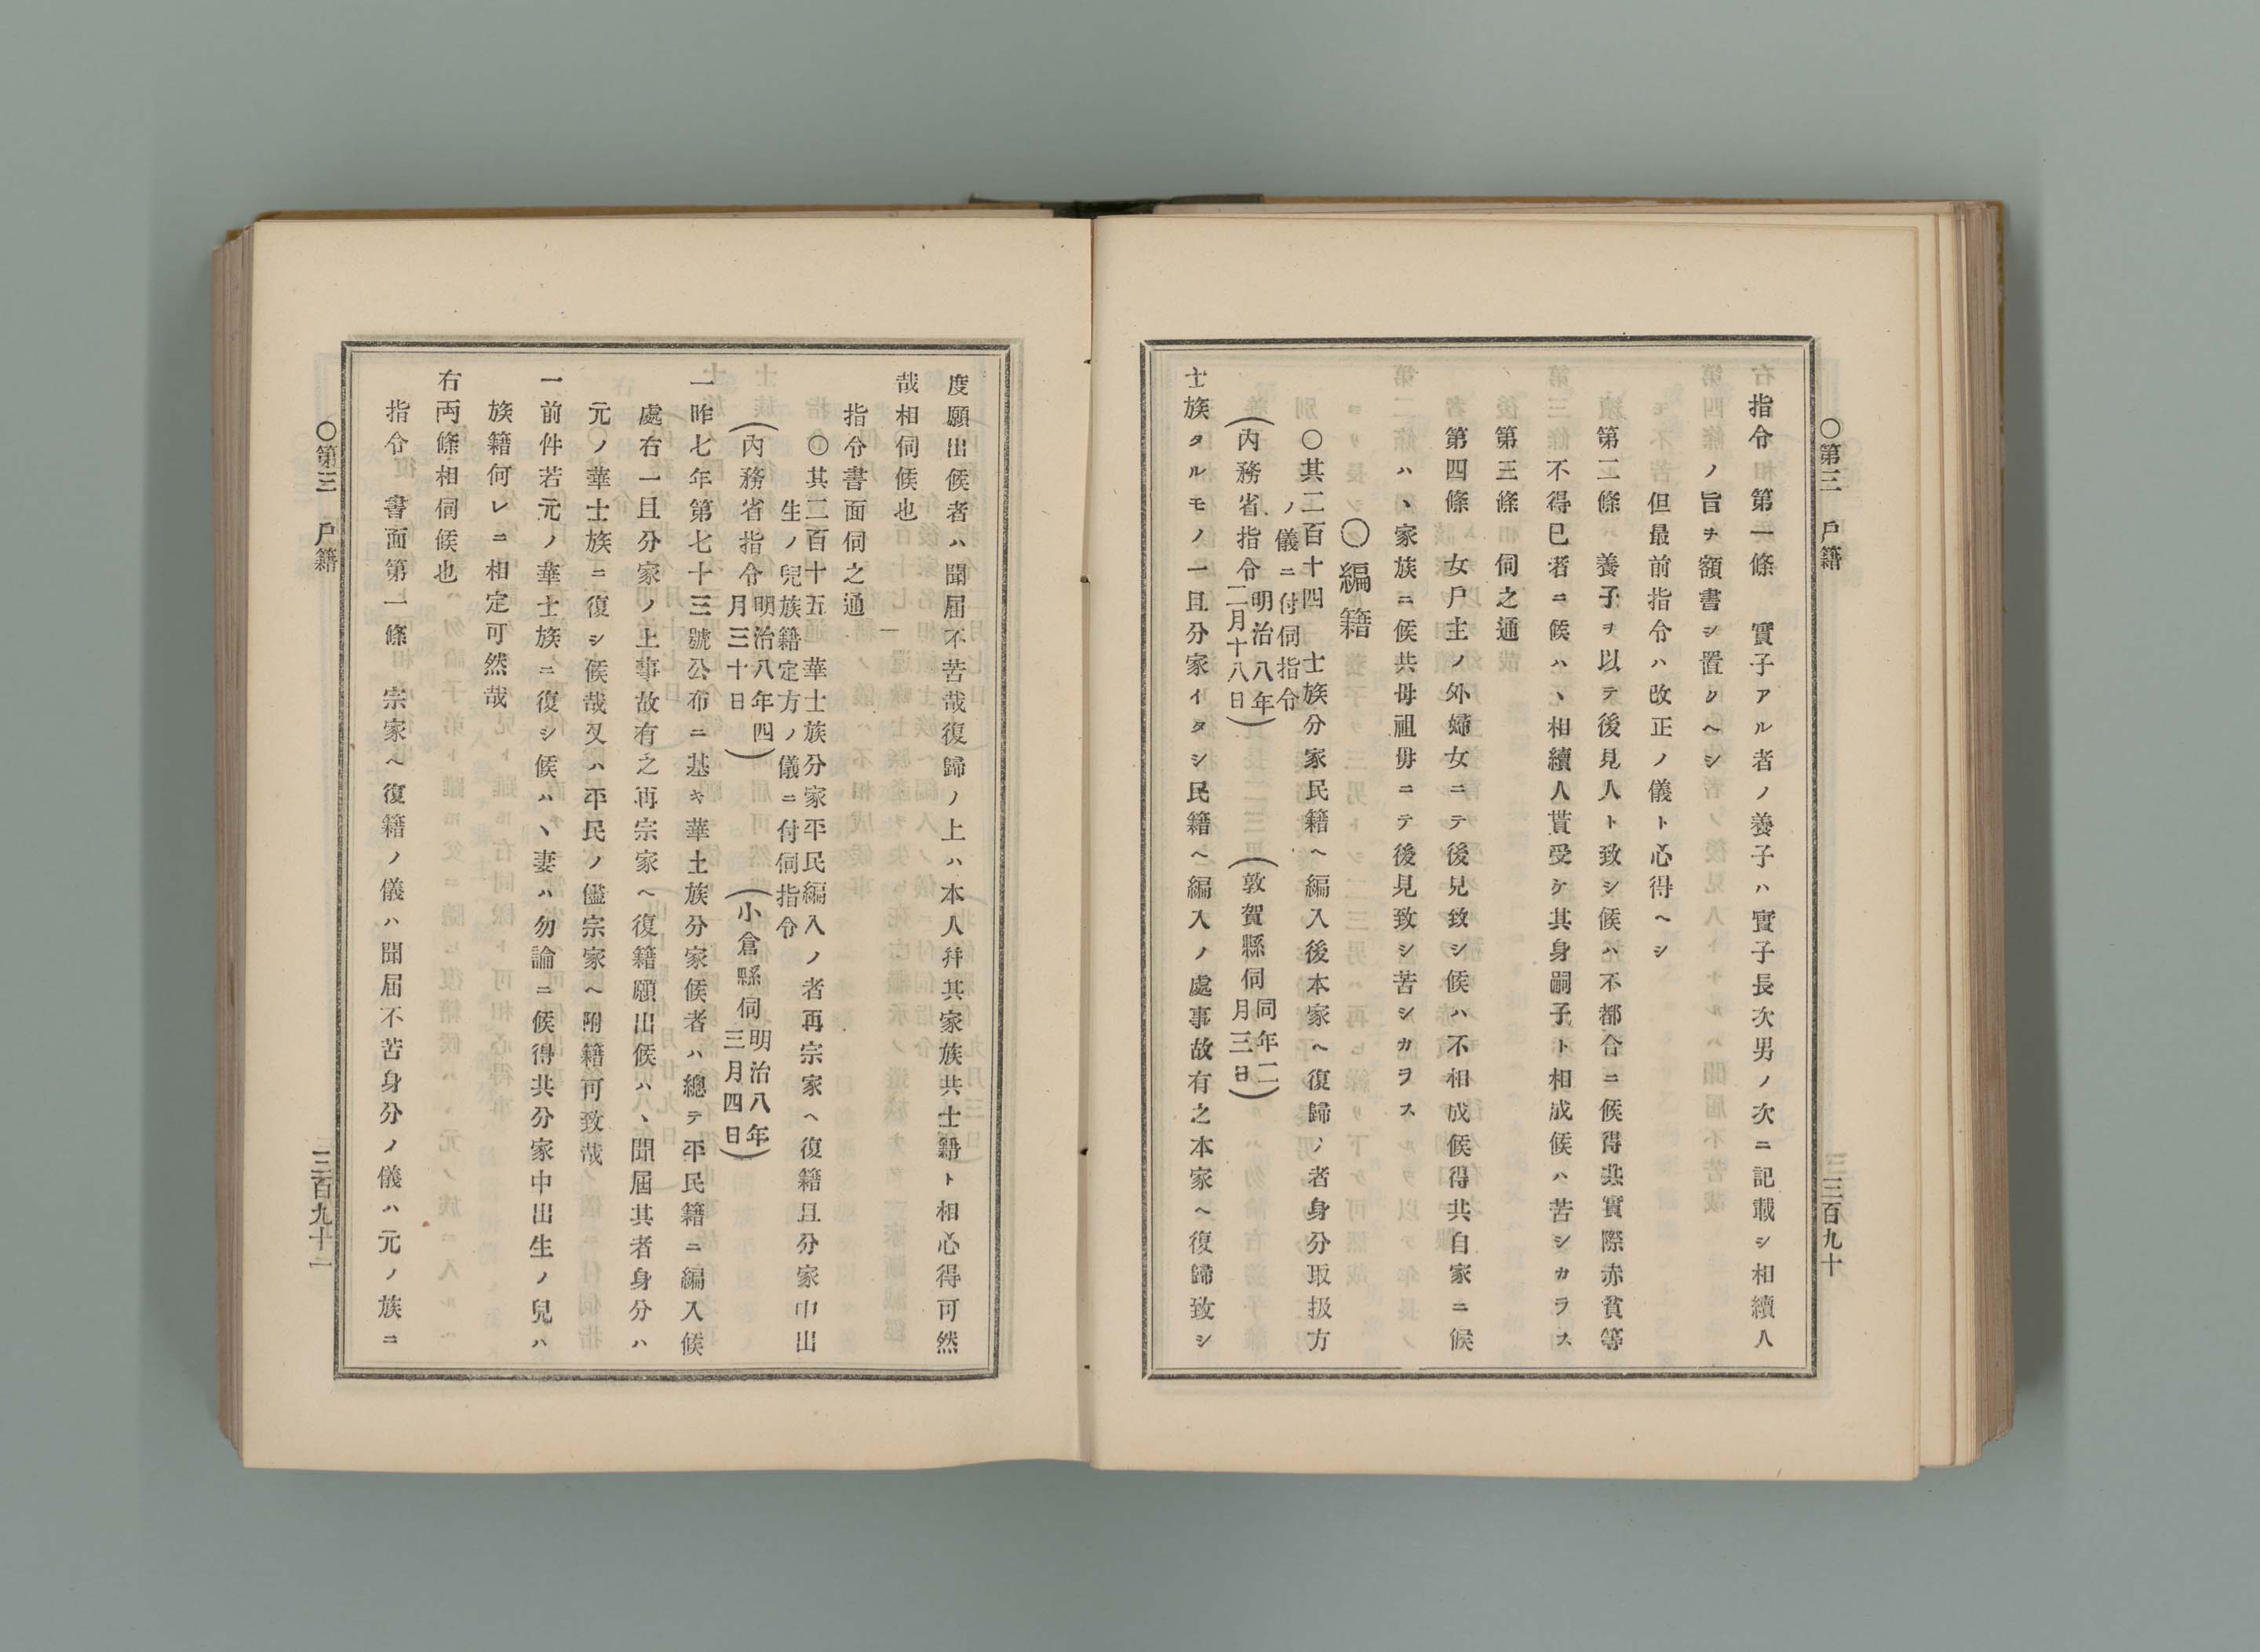 ○第三　戸籍
三百九十
指令　第一條　實子アル者ノ養子ハ實子長次男ノ次ニ記載シ相續人
ノ旨ヲ額書シ置クヘシ
但最前指令ハ改正ノ儀ト心得ヘシ
第二條　養子ヲ以テ後見人ト致シ候ハ不都合ニ候得共實際赤貧等
不得已者ニ候ハヽ相續人貰受ケ其身嗣子ト相成候ハ苦シカラス
第三條　伺之通
第四條　女戸主ノ外婦女ニテ後見致シ候ハ不相成候得共自家ニ候
ハヽ家族ニ候共母祖母ニテ後見致シ苦シカラス
○編籍
○其二百十四　士族分家民籍ヘ編入後本家ヘ復歸ノ者身分取扱方
ノ儀ニ付伺指令
（內務省指令明治八年二月十八日）　（敦賀縣伺同年二月三日）
士族タルモノ一且分家イタシ民籍ヘ編入ノ處事故有之本家ヘ復歸致シ
度願出候者ハ聞届不苦哉復歸ノ上ハ本人幷其家族共士籍ト相心得可然
哉相伺候也
指令書面伺之通
○其二百十五　華士族分家平民編入ノ者再宗家ヘ復籍且分家中出
生ノ兒族籍定方ノ儀ニ付伺指令
（內務省指令明治八年四月三十日）　（小倉縣伺明治八年三月四日）
一昨七年第七十三號公布ニ基キ華士族分家候者ハ總テ平民籍ニ編入候
處右一且分家ノ上事故有之再宗家ヘ復籍願出候ハヽ聞屆其者身分ハ
元ノ華士族ニ復シ候哉又ハ平民ノ儘宗家ヘ附籍可致哉
一前件若元ノ華士族ニ復シ候ハヽ妻ハ勿論ニ候得共分家中出生ノ兒ハ
族籍何レニ相定可然哉
右兩條相伺候也
指令　書面第一條　宗家ヘ復籍ノ儀ハ聞届不苦身分ノ儀ハ元ノ族ニ
○第三　戸籍
三百九十一